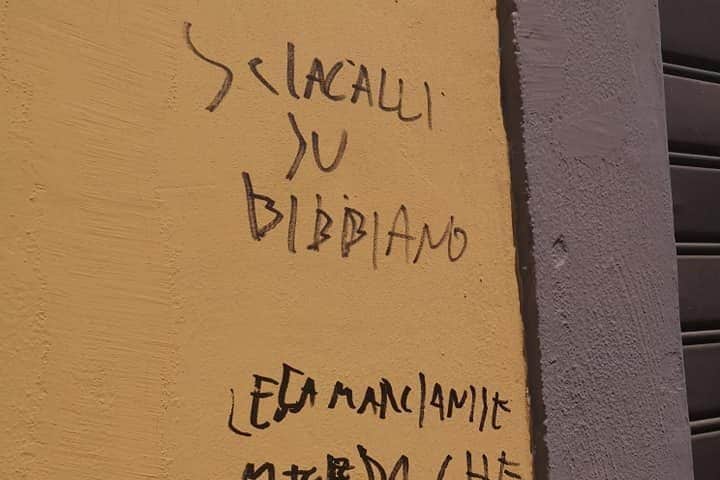 SCIACALLI
SU
BIBBIANO
LEGA MARCIANISE
MERDA CHE